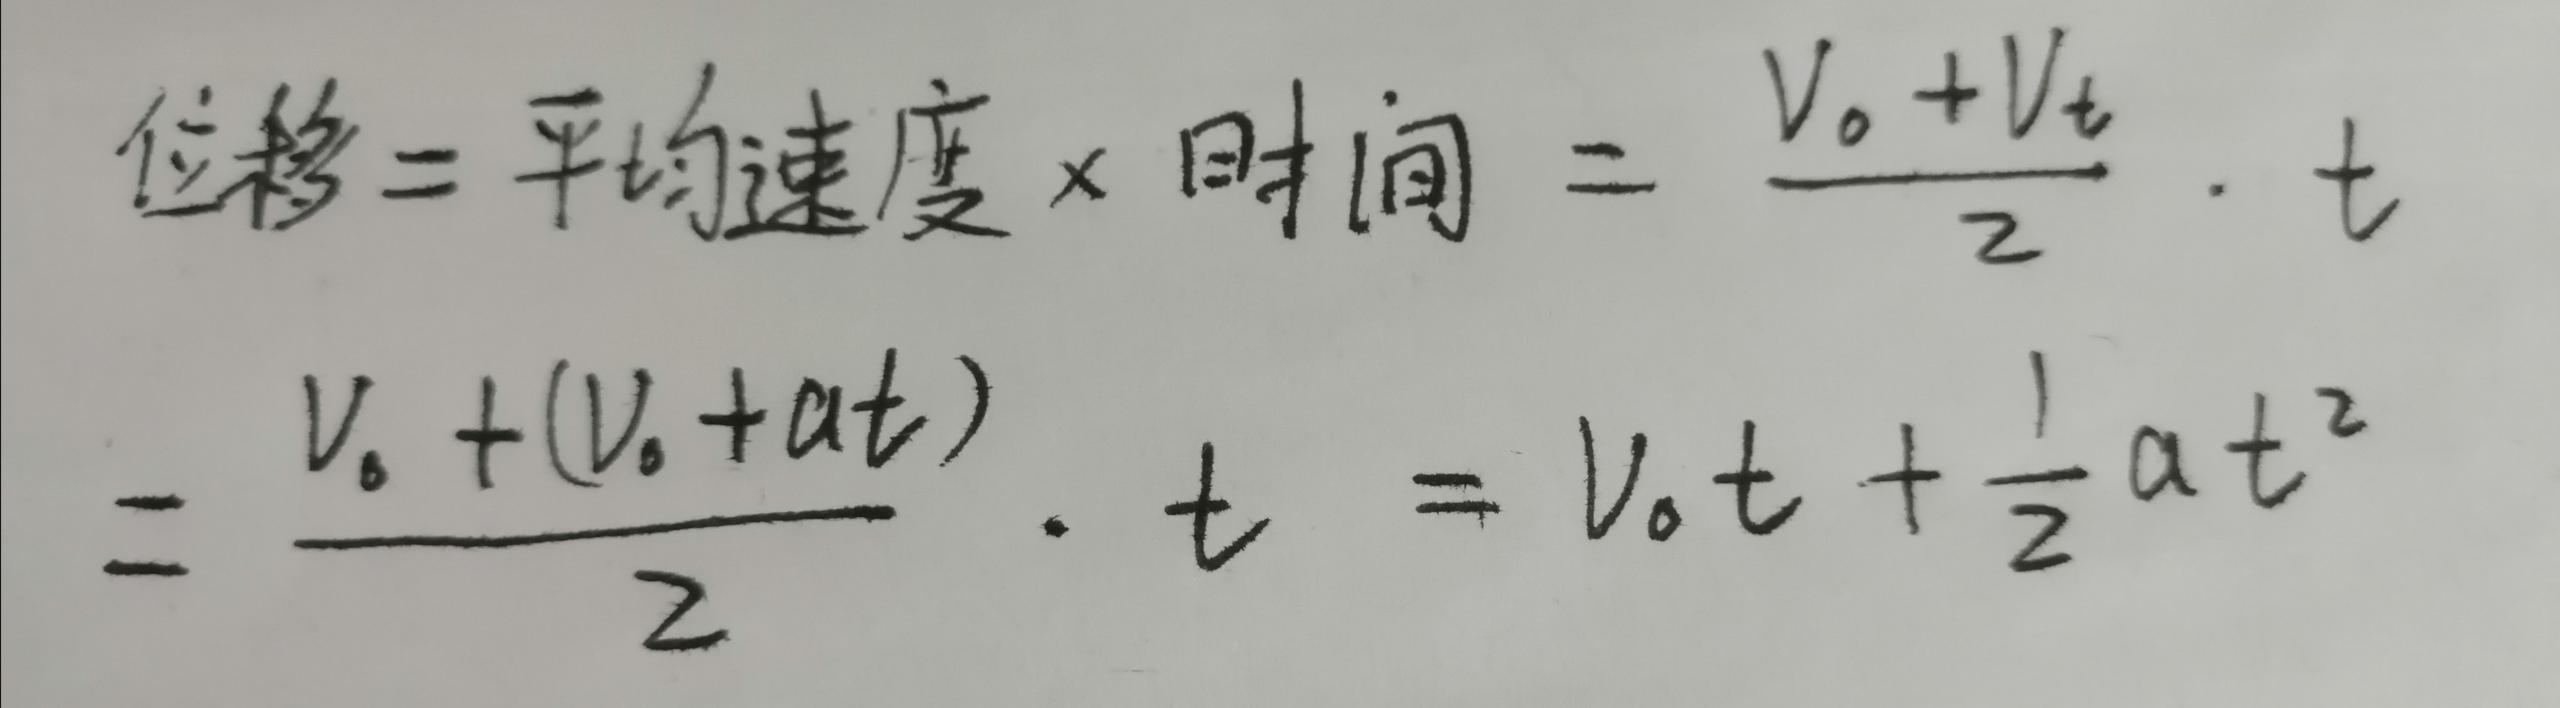 位移 = 平均速度 × 时间 = \frac{V_0 + V_t}{2} · t
= \frac{V_0 + (V_0 + at)}{2} · t = V_0 t + \frac{1}{2} a t^2